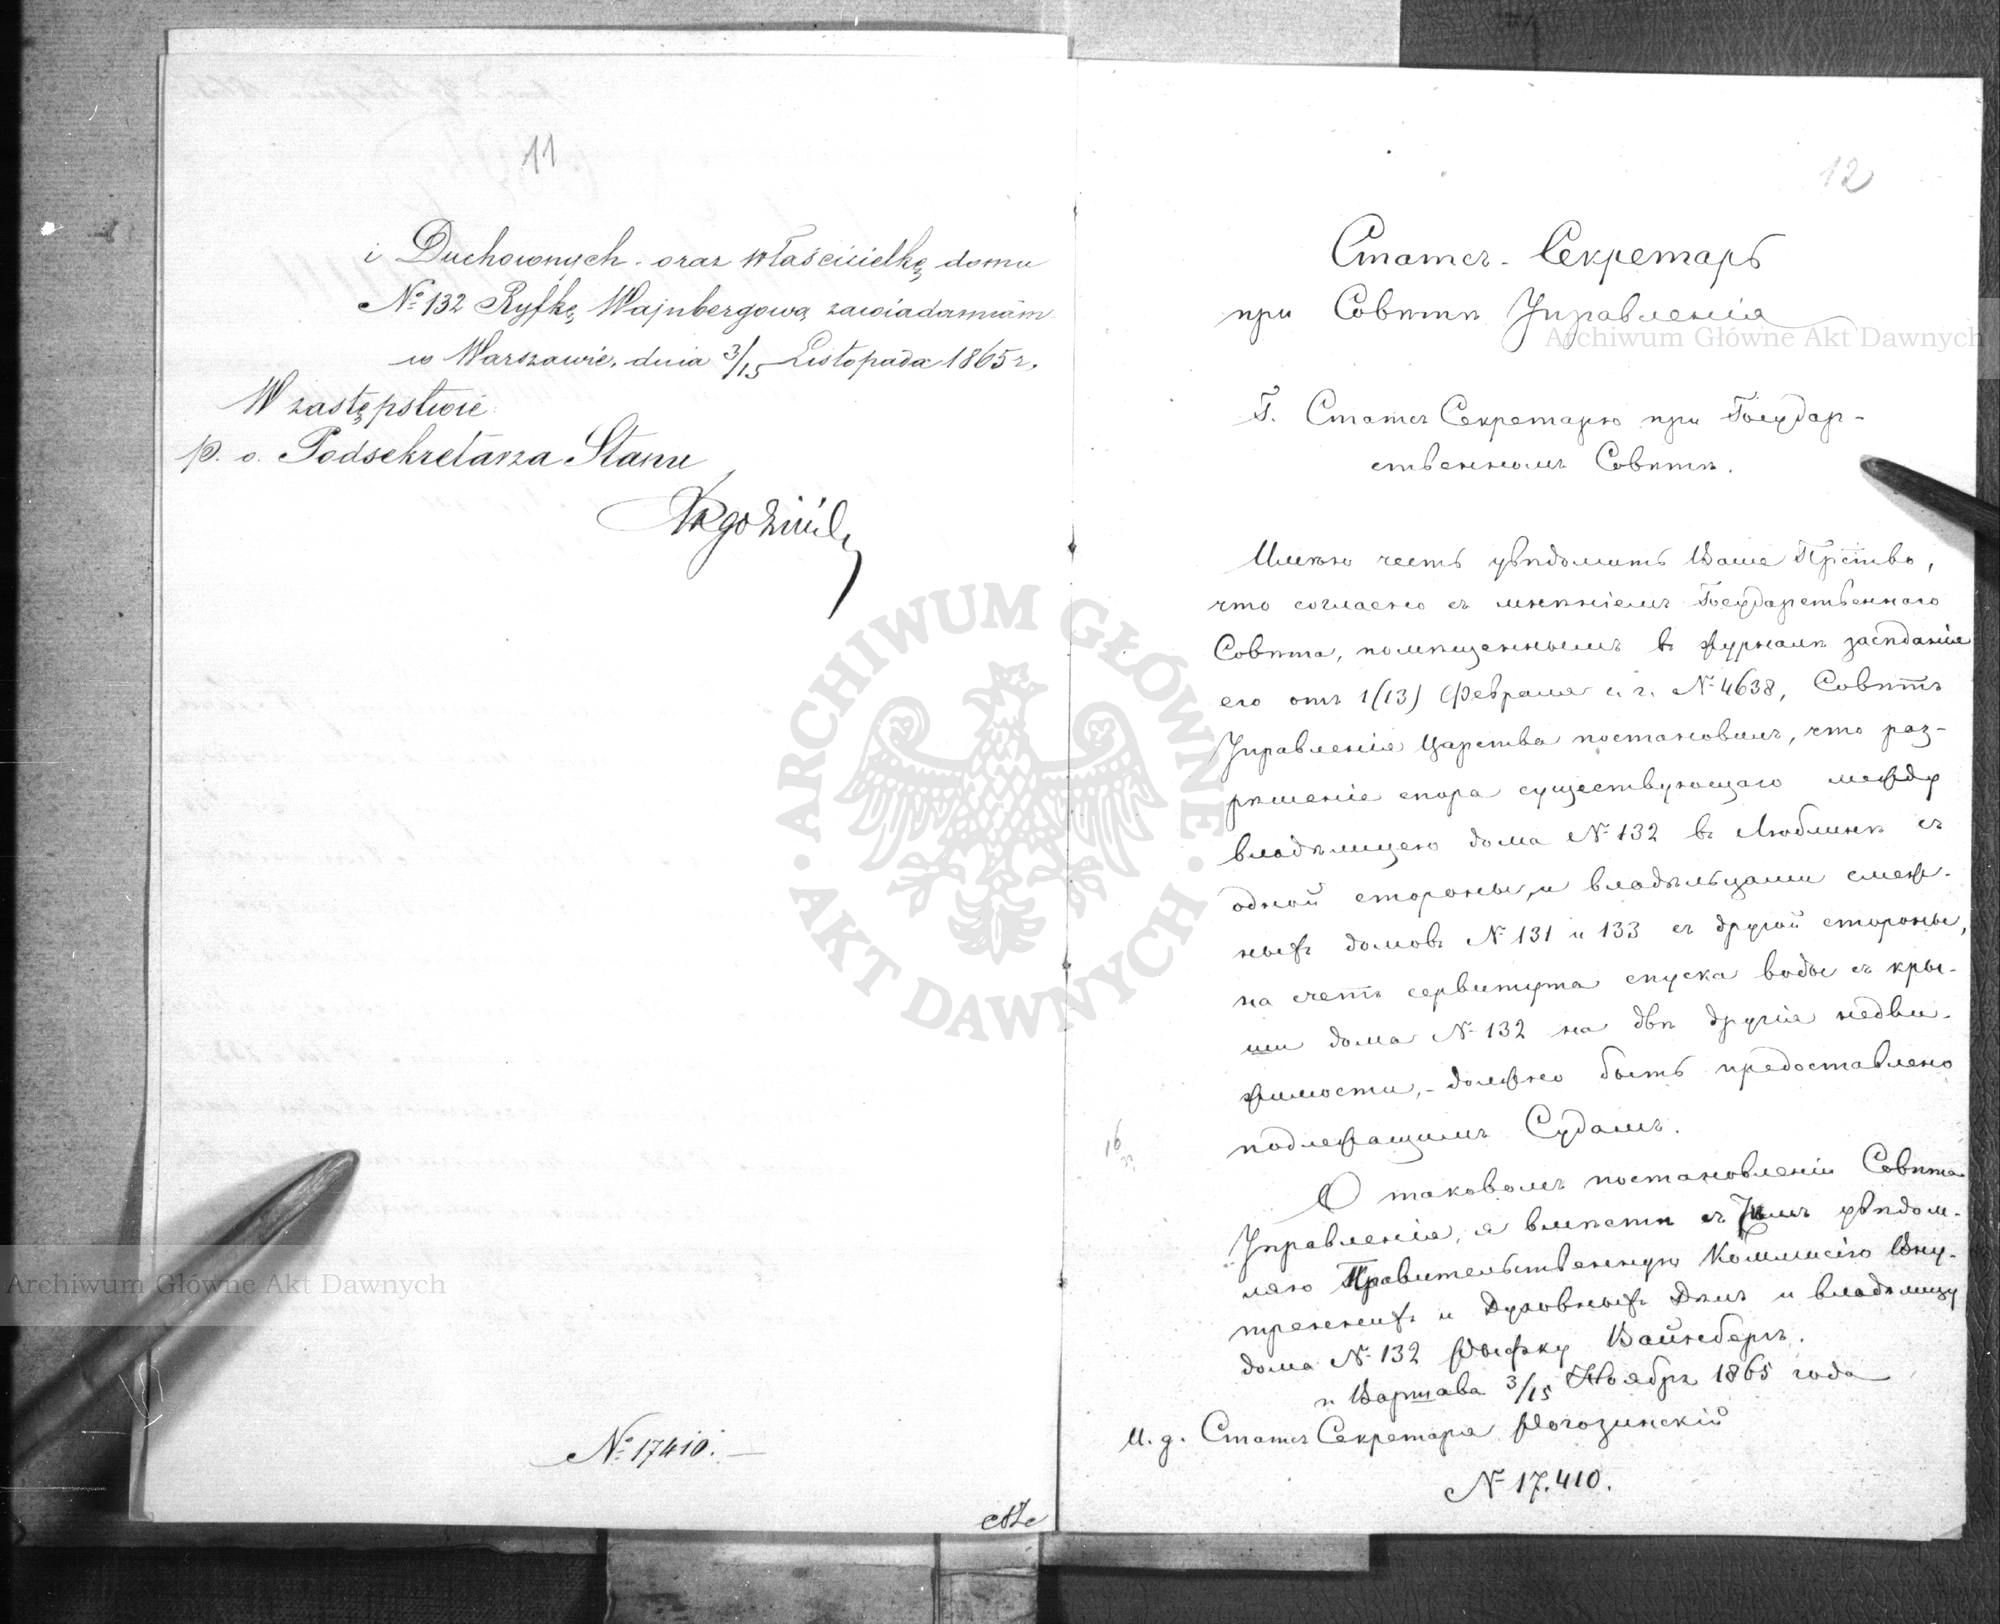 11
i Duchownych oraz właścicielkę domu
№ 132 Ryfkę Wajnbergową zawiadamiam
w Warszawie, dnia 3/15 Listopada 1865 r.
W zastępstwie
p. o. Podsekretarza Stanu
№ 17410.
12
Статсъ-Секретарь
при Совѣтѣ Управленія
Г. Статсъ Секретарю при Государ-
ственномъ Совѣтѣ.
Имѣю честь увѣдомить Ваше Прство,
что согласно съ мнѣніемъ Государственнаго
Совѣта, помѣщеннымъ въ журналѣ засѣданія
его отъ 1(13) Февраля с. г. № 4638, Совѣтъ
Управленія Царства постановилъ, что раз-
рѣшеніе спора существующаго между
владѣлицею дома № 132 въ Люблинѣ съ
одной стороны, и владѣльцами смеж-
ныхъ домовъ № 131 и 133 съ другой стороны,
на счетъ сервитута спуска воды съ кры-
ши дома № 132 на двѣ другія недви-
жимости, - должно быть предоставлено
подлежащимъ Судамъ.
О таковомъ постановленіи Совѣта
Управленія, я вмѣстѣ съ симъ увѣдом-
ляю Правительственную Коммисію Вну-
треннихъ и Духовныхъ Дѣлъ и владѣлицу
дома № 132 Рыфку Вайнбергъ.
Варшава 3/15 Ноября 1865 года
И. д. Статсъ Секретаря Рогозинскій
№ 17.410.
ARCHIWUM GŁÓWNE AKT DAWNYCH
Archiwum Główne Akt Dawnych
Archiwum Główne Akt Dawnych